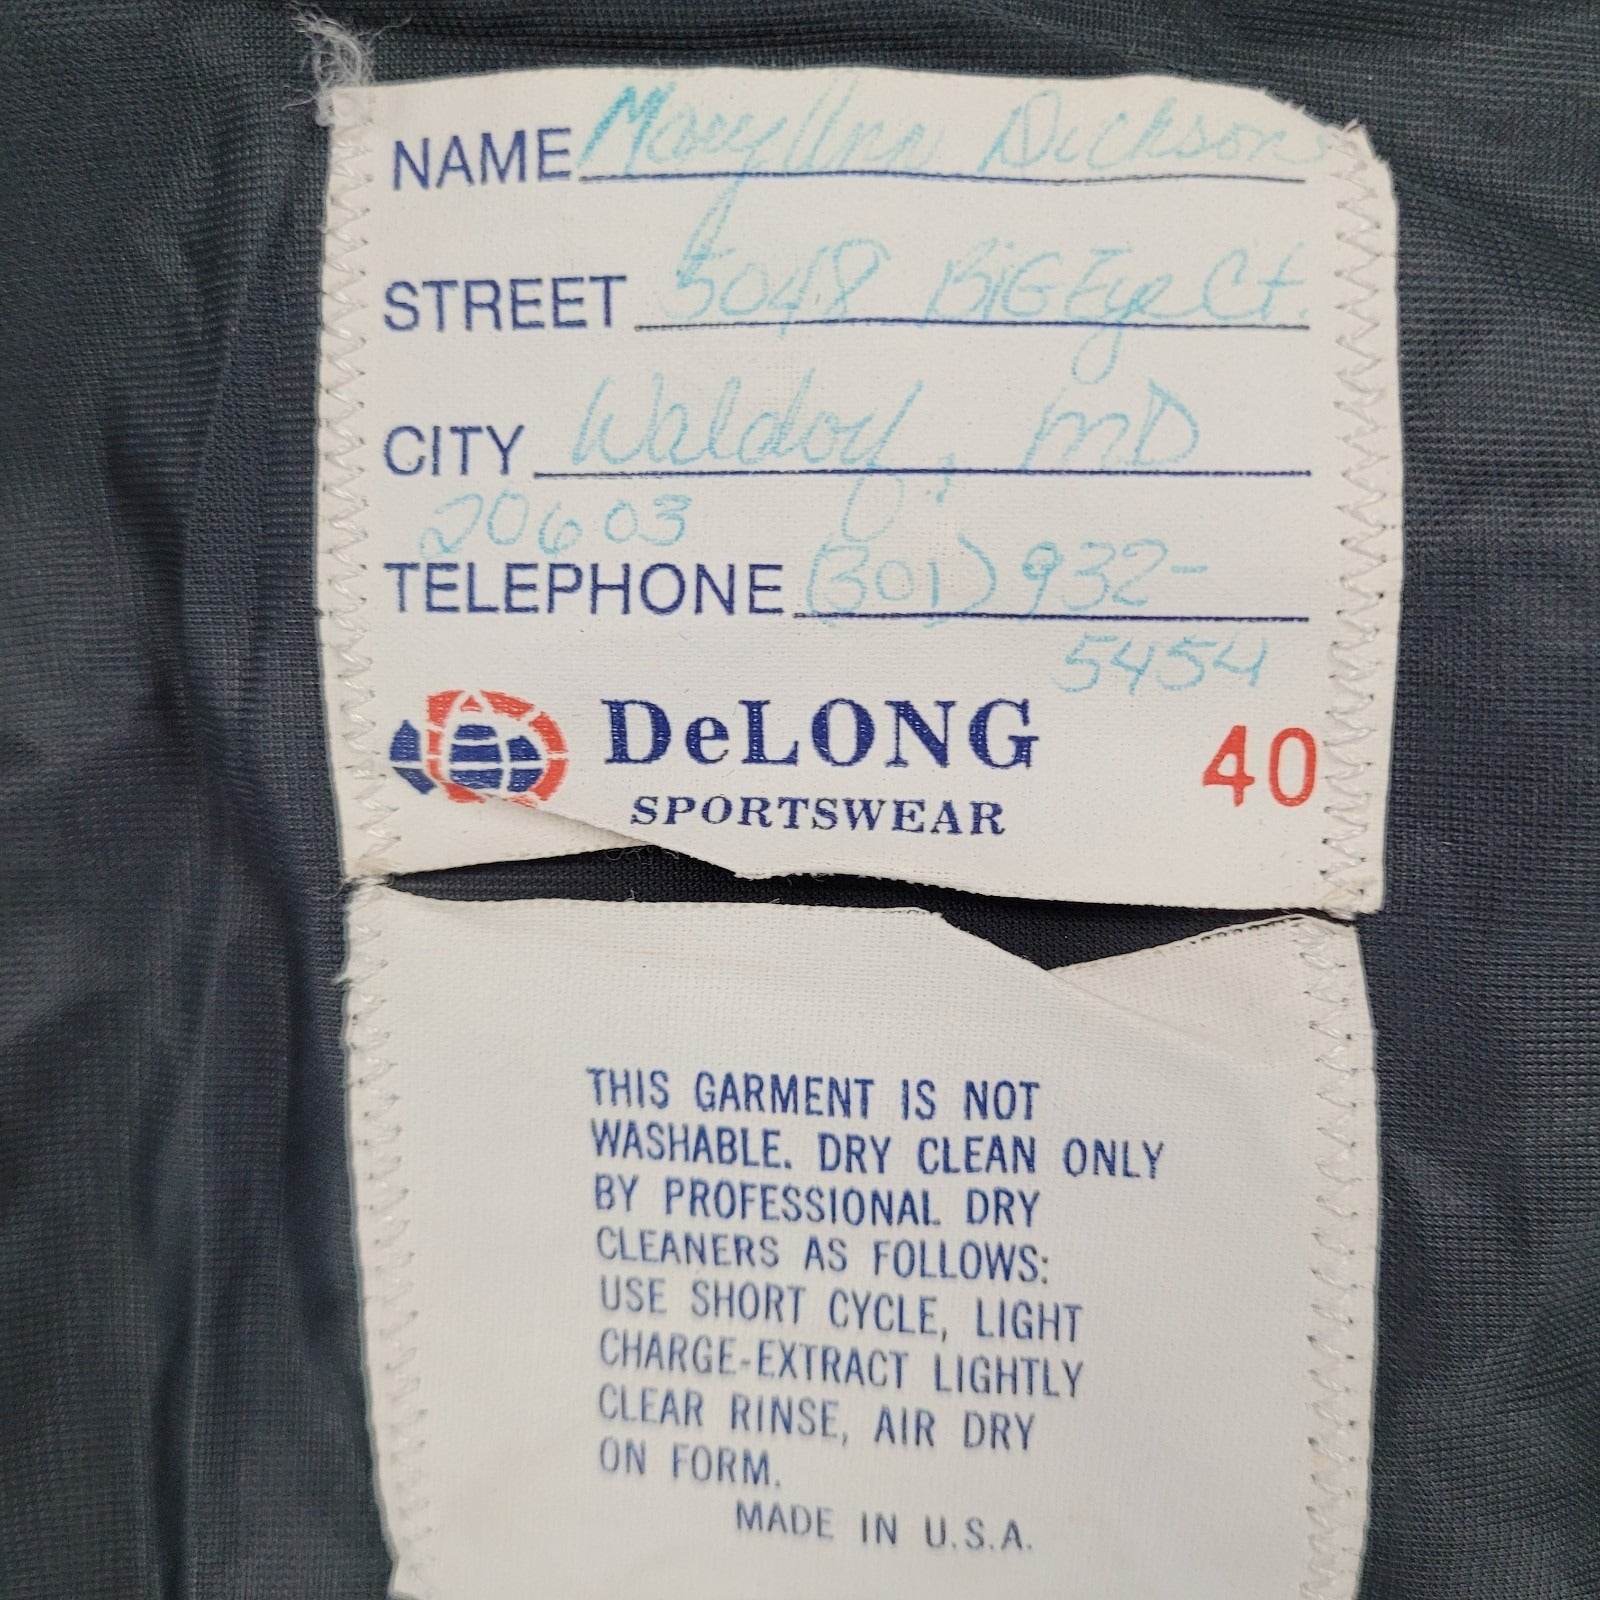 NAME Mary Ann Dickson
STREET 5048 BiG Eye Ct.
CITY Waldorf, MD
20603
TELEPHONE (301) 932-
5454
DeLONG 40
SPORTSWEAR
THIS GARMENT IS NOT
WASHABLE. DRY CLEAN ONLY
BY PROFESSIONAL DRY
CLEANERS AS FOLLOWS:
USE SHORT CYCLE, LIGHT
CHARGE-EXTRACT LIGHTLY
CLEAR RINSE, AIR DRY
ON FORM.
MADE IN U.S.A.